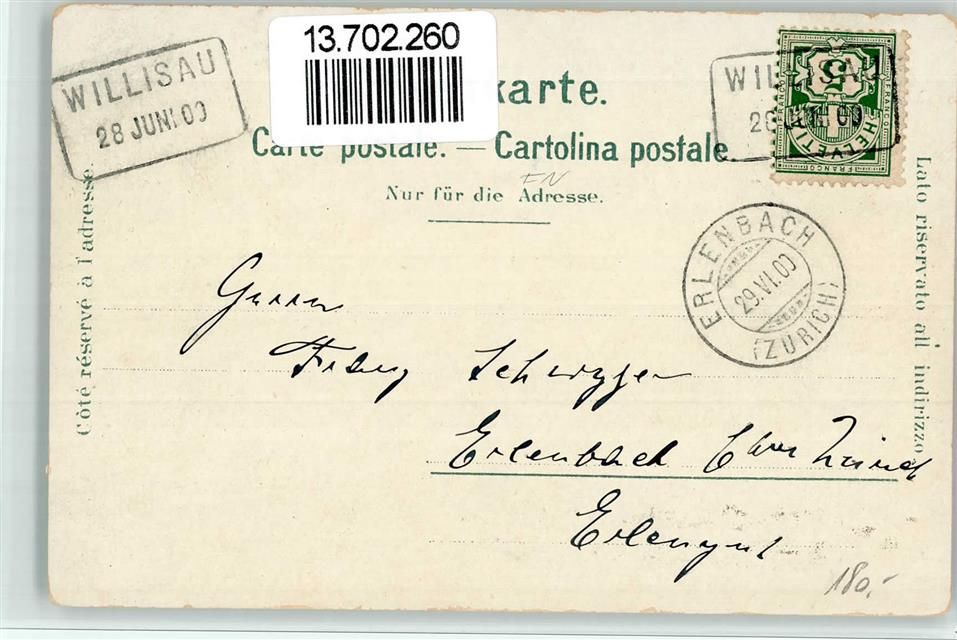 13.702.260
WILLISAU
28 JUNI 00
karte.
Carte postale. — Cartolina postale.
Nur für die Adresse.
WILLISAU
28 JUNI 00
5
FRANCO
HELVETIA
FRANCO
ERLENBACH
29.VI.00
(ZÜRICH)
Côté réservé à l'adresse.
Lato riservato all indirizzo.
Herrn
Franz
Erlenbach Ct. Zürich
Erlengut
180.-